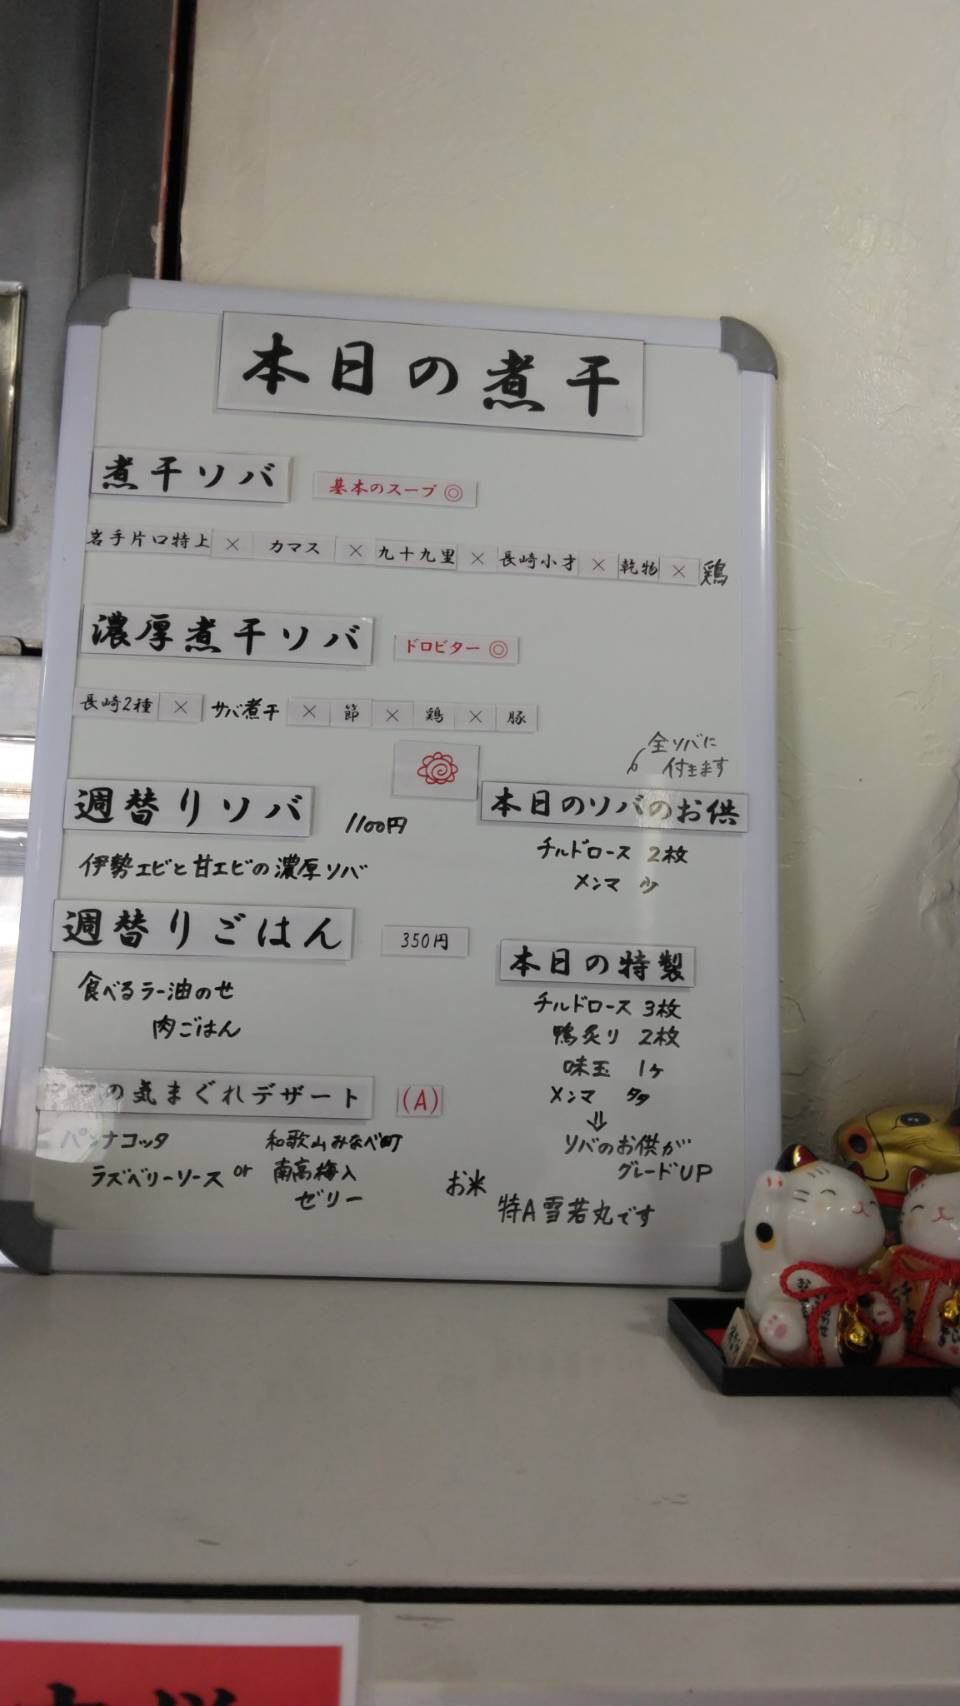 本日の煮干
煮干ソバ 基本のスープ ◎
岩手片口特上 × カマス × 九十九里 × 長崎小才 × 乾物 × 鶏
濃厚煮干ソバ ドロビター ◎
長崎2種 × サバ煮干 × 節 × 鶏 × 豚
週替りソバ 1100円
伊勢エビと甘エビの濃厚ソバ
週替りごはん 350円
食べるラー油のせ
肉ごはん
の気まぐれデザート (A)
パンナコッタ
ラズベリーソース or
和歌山みなべ町
南高梅入
ゼリー
全ソバに
付きます
本日のソバのお供
チルドロース 2枚
メンマ 少
本日の特製
チルドロース 3枚
鴨炙り 2枚
味玉 1ヶ
メンマ 多
⇓
ソバのお供が
グレードUP
お米
特A雪若丸です